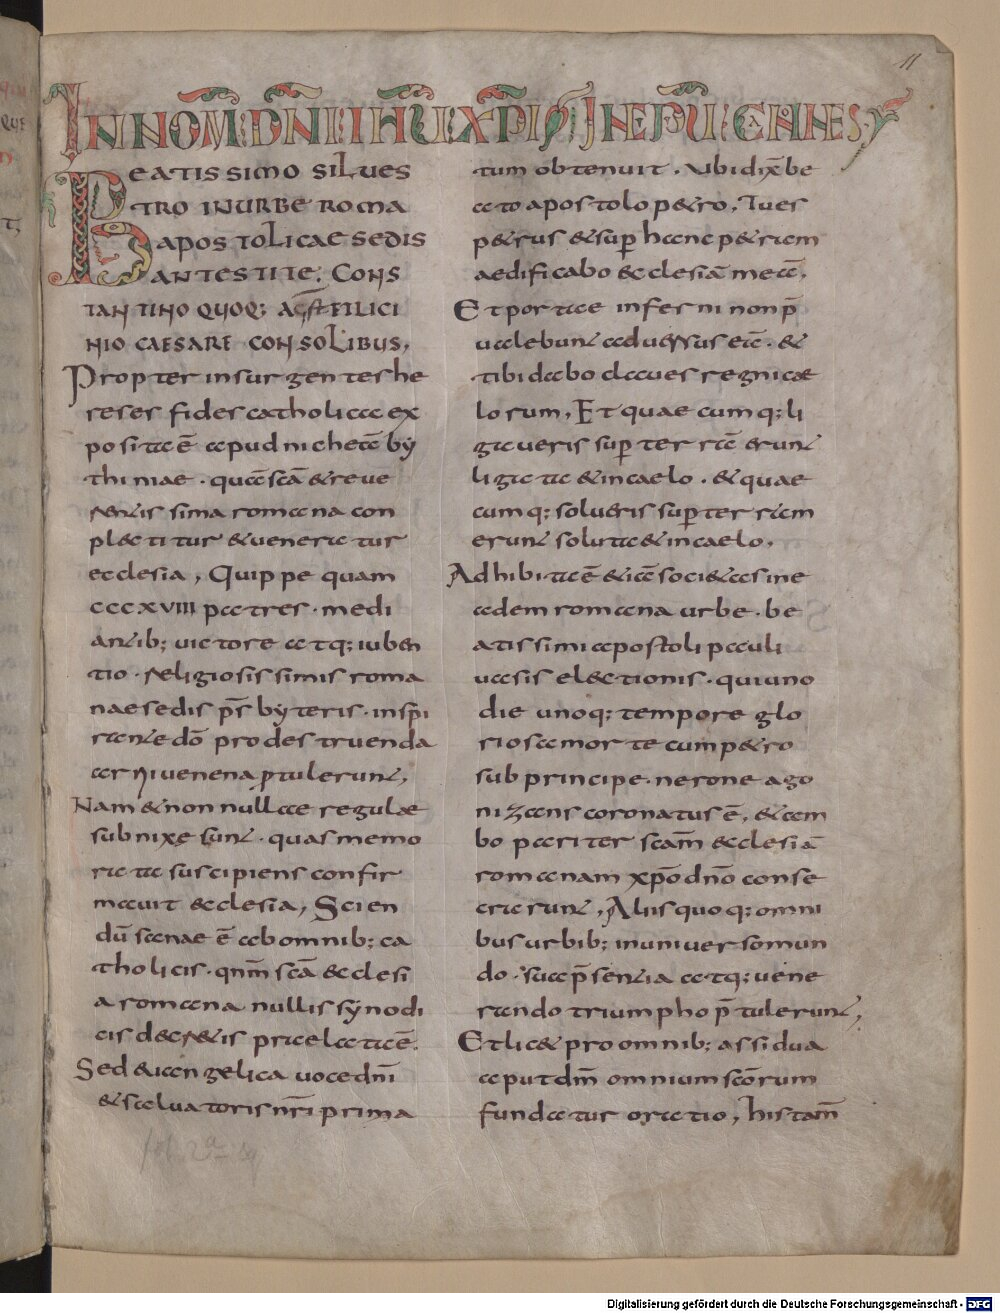 11
IN NOM̄ DN̄I IHŪ XP̄I INEPŪ CANNES
BEATISSIMO SILUES
TRO IN URBE ROMA
APOSTOLICAE SEDIS
ANTESTITE; CONS
TANTINO QUOQ; AGS̄T & LICI
NIO CAESARE CONSOLIBUS,
Propter insurgentes he
reses fides catholica ex
posita ē apud nicheā bẏ
thiniae · quā sc̄a & reve
rentissima romana con
plectitur & veneratur
ecclesia, Quippe quam
cccxviii patres · medi
antib; victore atq; iuben
tio · religiosissimis roma
nae sedis pr̄sbẏteris · inspi
rante dō pro destruenda
arrii venena ꝓtulerunt,
Nam & non nullae regulae
subnixe sunt · quas memo
rata suscipiens confir
mavit ecclesia, Scien
dū sanae ē ab omnib; ca
tholicis · qn̄m sc̄a ecclesi
a romana nullis sẏnodi
cis decretis praelata ē.
Sed & iangelica voce dn̄i
& salvatoris nr̄i prima
tum obtenuit. Ubi dix̄ be
ato apostolo petro, Tu es
petrus & sup̄ hanc petram
aedificabo ecclesiā meā,
Et portae inferni non p̄
valebunt adversus eā · &
tibi dabo claves regni cae
lorum, Et quaecumq; li
gaveris sup̄ terrā erunt
ligata & in caelo · & quae
cumq; solveris sup̄ terram
erunt soluta & in caelo,
Adhibita ē & iā societas in e
adem romana urbe · be
atissimi apostoli pauli
vasis electionis · qui uno
die unoq; tempore glo
riosa morte cum petro
sub principe · nerone ago
nizans coronatus ē, & am
bo pariter scām ecclesiā
romanam xp̄o dn̄o conse
crarunt, Aliisquoq; omni
bus urbib; in universo mun
do · sua p̄sentia atq; vene
rando triumpho p̄tulerunt,
Et licet pro omnib; assidua
aput dm̄ omnium sc̄orum
fundatur oratio, his tam̄
Digitalisierung gefördert durch die Deutsche Forschungsgemeinschaft - DFG